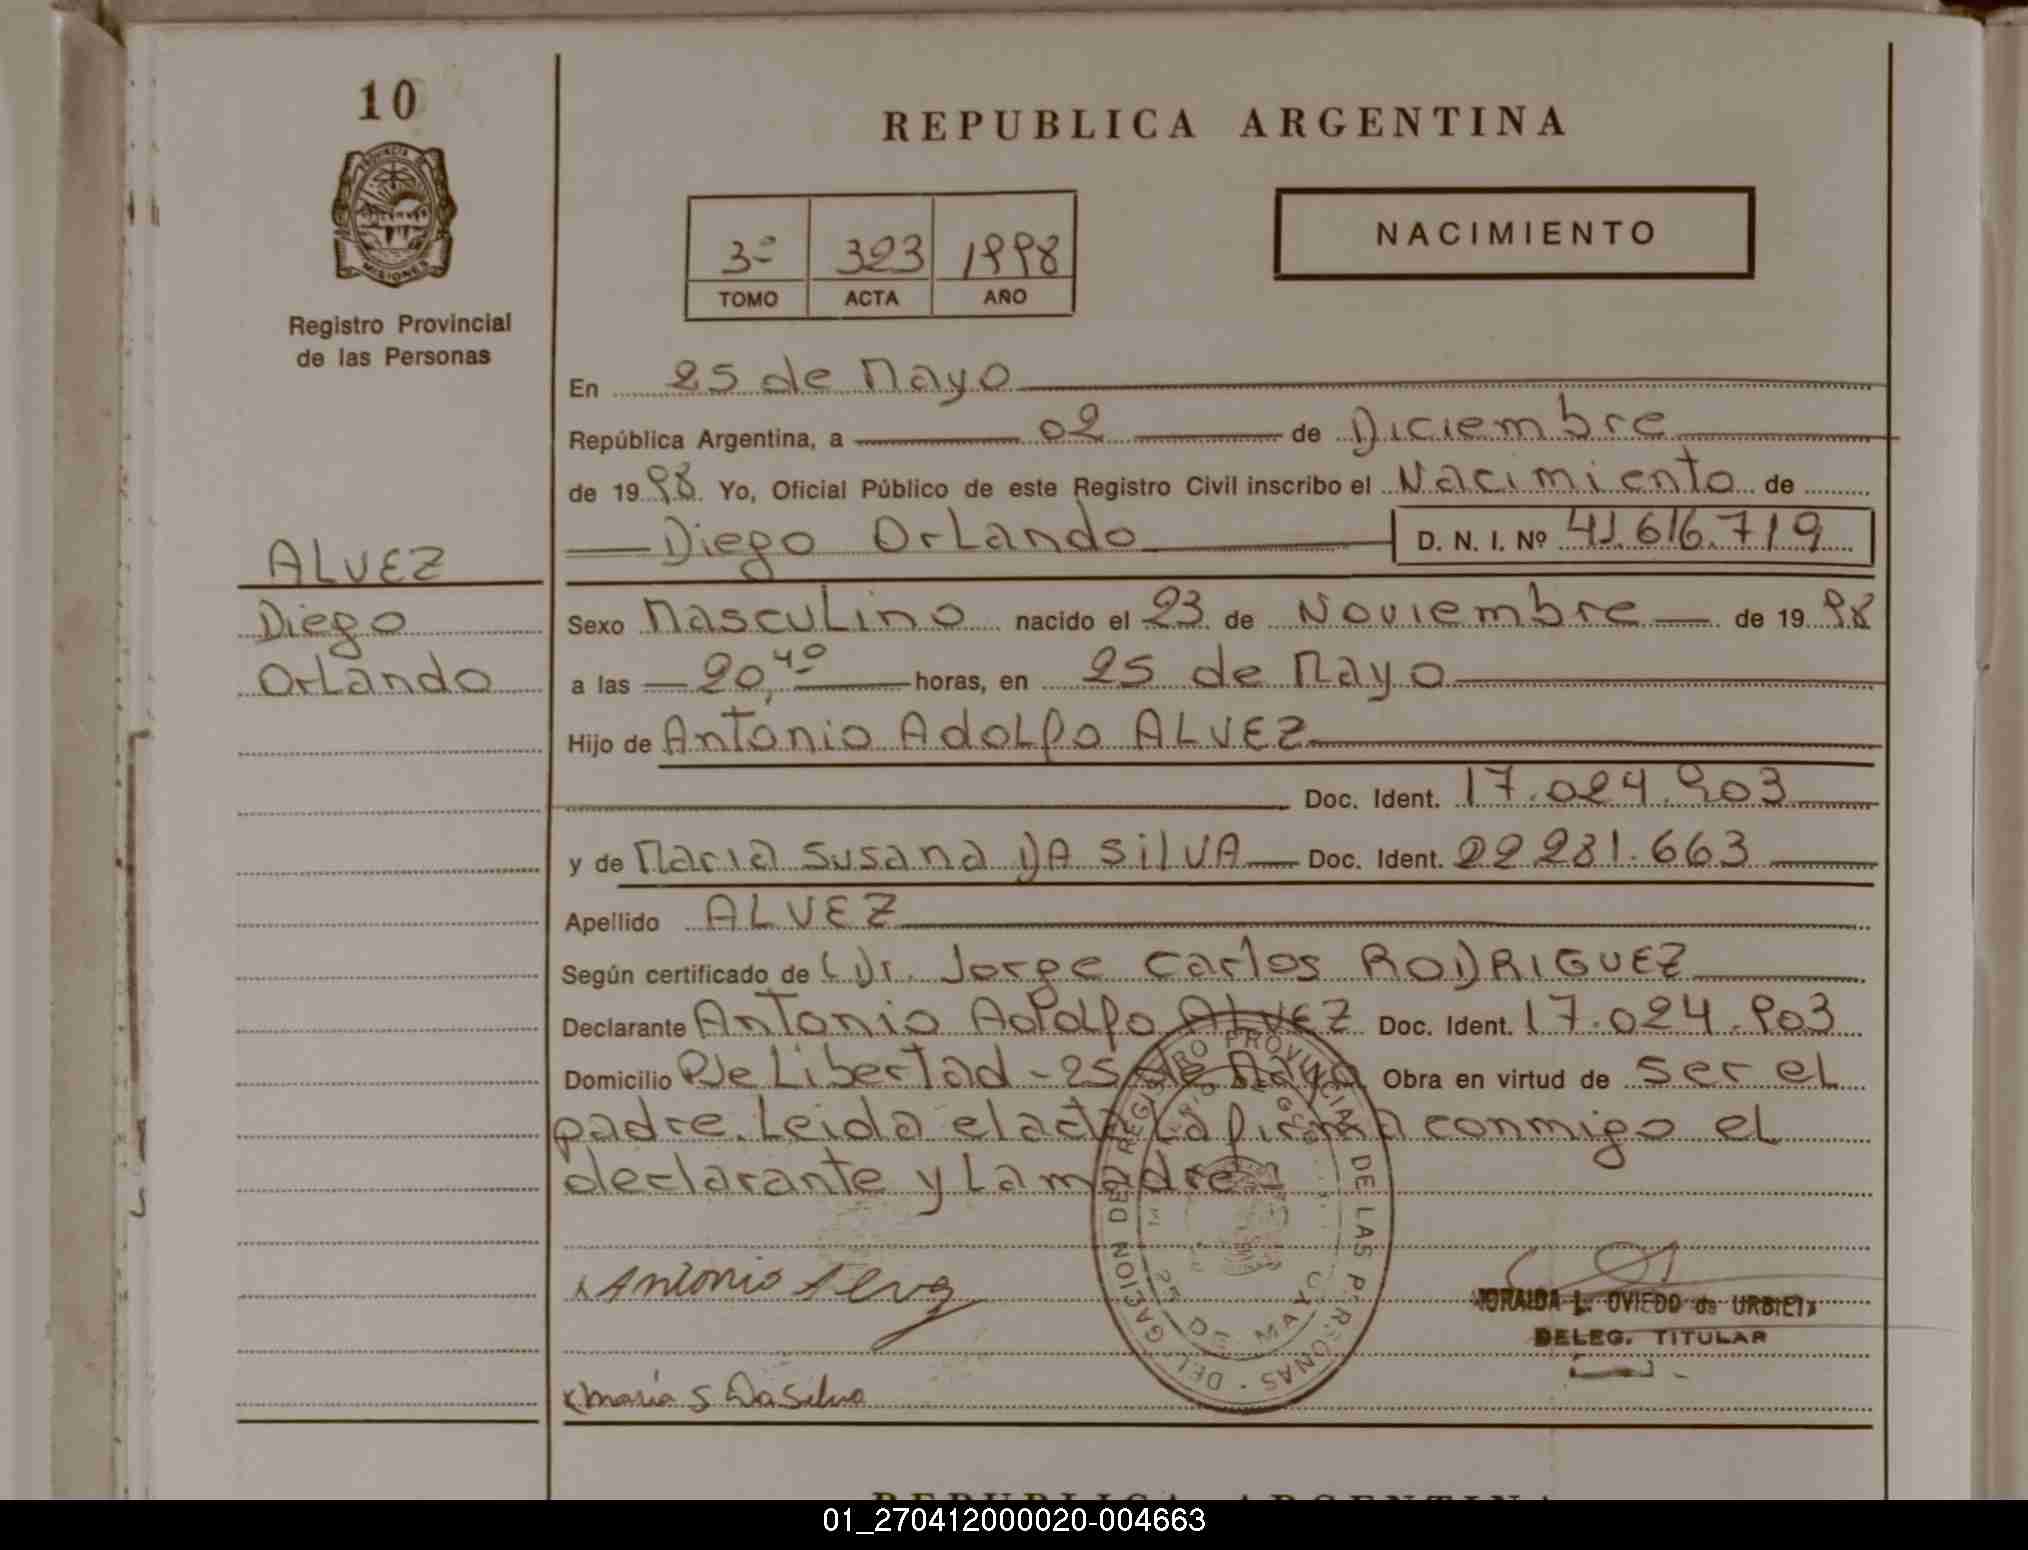 10
REPUBLICA ARGENTINA
PROVINCIA DE
MISIONES
NACIMIENTO
3º 323 1998
TOMO ACTA AÑO
Registro Provincial
de las Personas
En 25 de Mayo
República Argentina, a 02 de Diciembre
de 1998. Yo, Oficial Público de este Registro Civil inscribo el Nacimiento de
Diego Orlando D. N. I. Nº 41.616.719
ALVEZ
Diego
Orlando
Sexo Masculino nacido el 23 de Noviembre de 1998
a las 20,40 horas, en 25 de Mayo
Hijo de Antonio Adolfo ALVEZ
Doc. Ident. 17.024.903
y de Maria Susana DA SilVA Doc. Ident. 22 281.663
Apellido ALVEZ
Según certificado de Dr. Jorge Carlos RODRIGUEZ
Declarante Antonio Adolfo ALVEZ Doc. Ident. 17.024.903
Domicilio Pje Libertad - 25 de Mayo Obra en virtud de ser el
padre. Leida el acta la firma conmigo el
declarante y La madre.-
DELEGACION DEL REGISTRO PROVINCIAL DE LAS PERSONAS
25 DE MAYO
Antonio Alvez
L. OVIEDO de
DELEG. TITULAR
Maria S Da Silva
REPUBLICA ARGENTINA
01_270412000020-004663